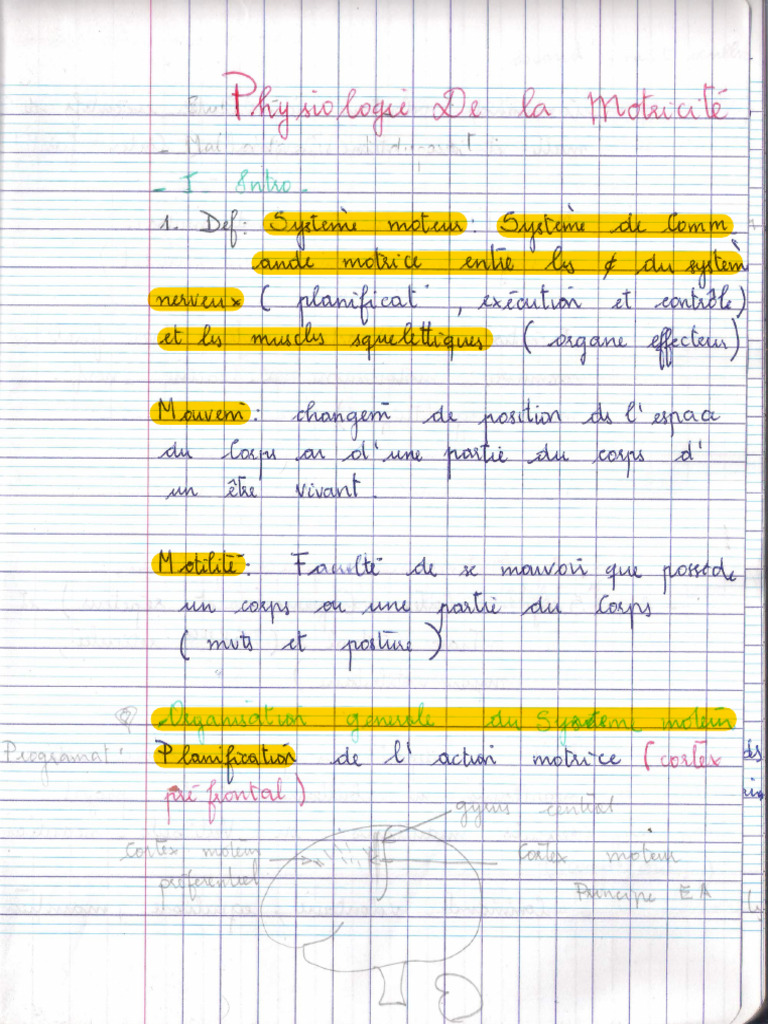 Physiologie De la Motricité
- I - Intro -
1. Def: Système moteur: Système de Comm
ande motrice entre les ¢ du systèm
nerveux ( planificat°, exécution et contrôle)
et les muscles squelettiques ( organe effecteur)
Mouvem: changem de position ds l'espace
du Corps ou d'une partie du corps d'
un être vivant.
Motilité: Faculté de se mouvoir que possède
un corps ou une partie du Corps
( mvts et posture )
Organisation generale du Système moteur
Programat°
Planification de l'action motrice (cortex
préfrontal)
gyrus central
Cortex moteur
Cortex moteur
Principe